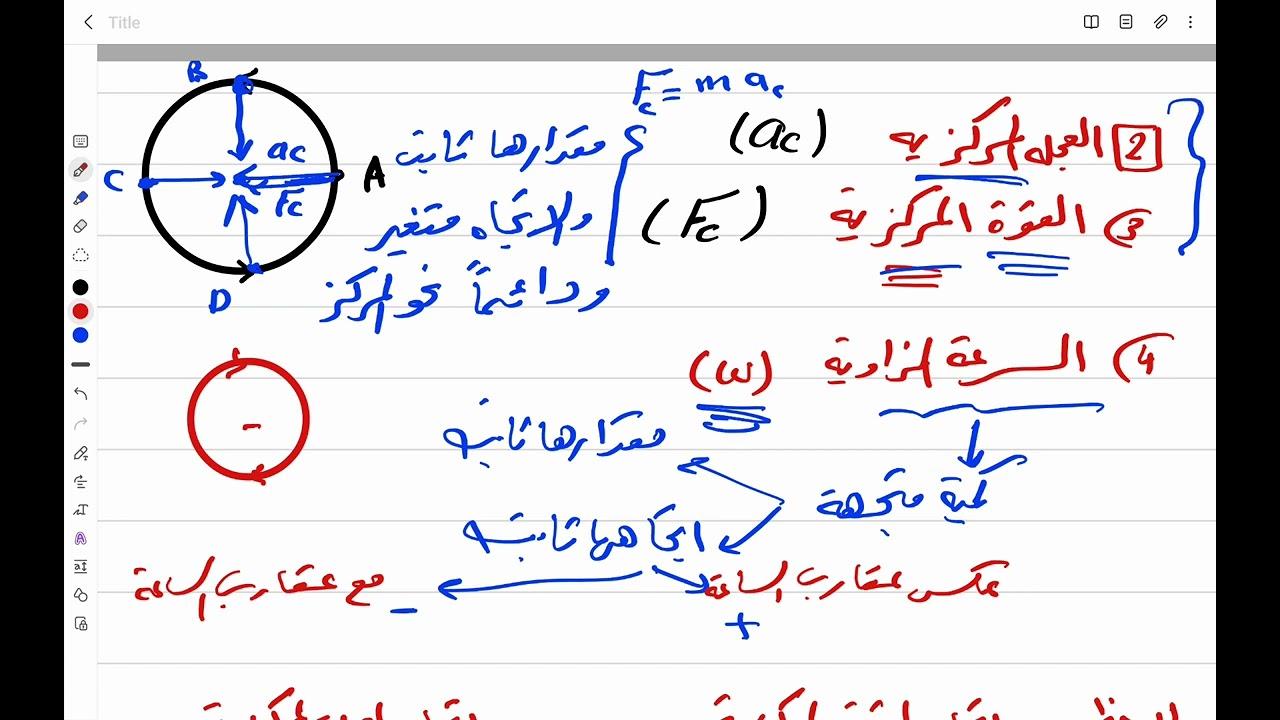 Title
F_c = m a_c
2 العجلة المركزية (a_c)
3) القوة المركزية (F_c)
مقدارها ثابت
والاتجاه متغير
ودائماً نحو المركز
B
a_c
A
C
F_c
D
4) السرعة الزاوية (ω)
كمية متجهة
مقدارها ثابت
اتجاهها ثابت
عكس عقارب الساعة +
مع عقارب الساعة -
-